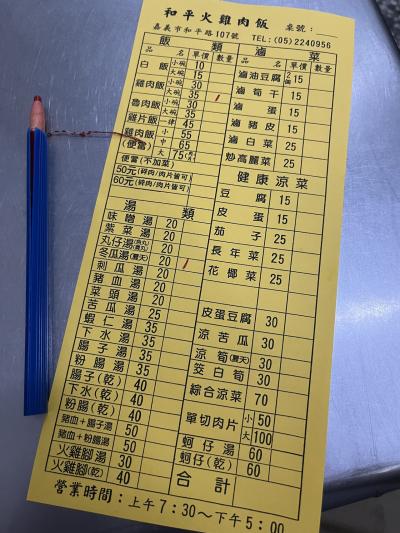 和平火雞肉飯 桌號：
嘉義市和平路107號 TEL:(05)2240956
飯類
品名 單價 數量
白飯 小碗 10
大碗 15
雞肉飯 小碗 30
大碗 35
魯肉飯 小碗 30
大碗 35
雞片飯 45
雞肉飯(便當) 小 55
中 65
大 75
便當(不加菜)
50元(碎肉/肉片皆可)
60元(碎肉/肉片皆可)
湯類
味噌湯 20
紫菜湯 20
丸仔湯 20
冬瓜湯(夏天) 20
刺瓜湯 20
豬血湯 20
菜頭湯 20
苦瓜湯 25
蝦仁湯 35
下水湯 35
腸子湯 35
粉腸湯 35
腸子(乾) 40
下水(乾) 40
粉腸(乾) 40
豬血+腸子湯 50
豬血+粉腸湯 50
火雞腳湯 30
火雞腳(乾) 40
滷菜
品名 單價 數量
滷油豆腐 2個 15
滷筍干 15
滷蛋 15
滷豬皮 15
滷白菜 25
炒高麗菜 25
健康涼菜
豆腐 15
皮蛋 15
茄子 25
長年菜 25
花椰菜 25
皮蛋豆腐 30
涼苦瓜 30
涼筍(夏天) 30
筊白筍 30
綜合涼菜 70
單切肉片 小 50
大 100
蚵仔湯 60
蚵仔(乾) 60
合計
營業時間：上午7:30～下午5:00